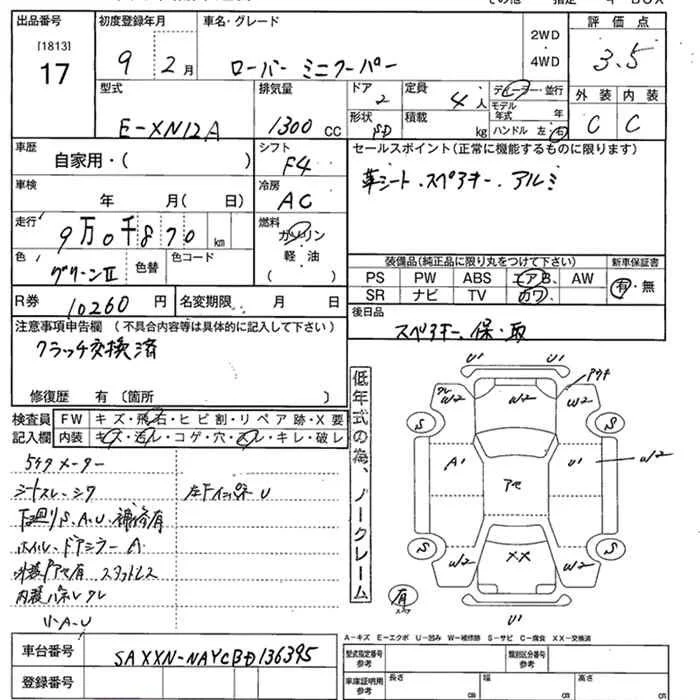 出品番号
[1813]
17
初度登録年月
9 2月
車名・グレード
ローバー ミニクーパー
2WD
4WD
評価点
3.5
型式
E-XN12A
排気量
1300 CC
ドア
2
形状
定員
4人
積載
kg
ディーラー・並行
モデル年式 年
ハンドル 左・右
外装 内装
C C
車歴
自家用・( )
シフト
F4
セールスポイント(正常に機能するものに限ります)
革シート・スペアキー・アルミ
車検
年 月( 日)
冷房
AC
走行
9万0千870 km
燃料
ガソリン
軽油
( )
色
グリーンII
色替
色コード
装備品(純正品に限り丸をつけて下さい)
PS PW ABS エアB、 AW
SR ナビ TV カワ
新車保証書
有・無
R券
10260円
名変期限 月 日
後日品
スペアキー、保・取
注意事項申告欄 (不具合内容等は具体的に記入して下さい)
クラッチ交換済
修復歴 有 (箇所 )
検査員
記入欄
FW キズ・飛石・ヒビ割・リペア跡・X要
内装 キズ・汚レ・コゲ・穴・スレ・キレ・破レ
5ケタメーター
シートスレ・シワ
下廻りS、A、U、補修有
ホイル・ドアミラーA
外装アセ有
内装パネルクレ
リ-A-U
低年式の為、ノークレーム
U1 U1
W2 W2 W2
S S
A1 アセ U1 W2
S S
W2 XX W2
有
U1
A-キズ E-エクボ U-凹み W-補修跡 S-サビ C-腐食 XX-交換済
車台番号
SAXXN-NAYCBD136395
登録番号
型式指定番号
参考
類別区分番号
参考
車庫証明用
参考
長さ cm
幅 cm
高さ cm